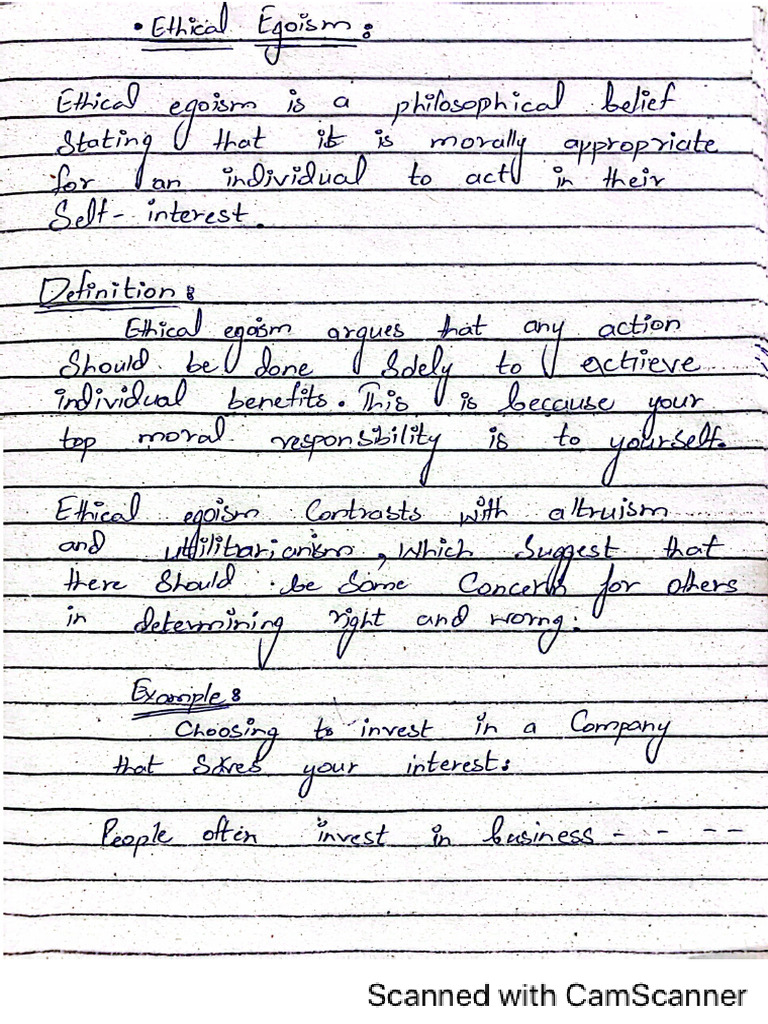 • Ethical Egoism:
Ethical egoism is a philosophical belief
Stating that it is morally appropriate
for an individual to act in their
Self-interest.
Definition:
Ethical egoism argues that any action
Should be done Solely to achieve
individual benefits. This is because your
top moral responsibility is to yourself.
Ethical egoism Contrasts with altruism
and utilitarianism, Which Suggest that
there Should be Some Concern for others
in determining right and worng.
Example:
Choosing to invest in a Company
that your interest:
People often invest in business - - - -
Scanned with CamScanner